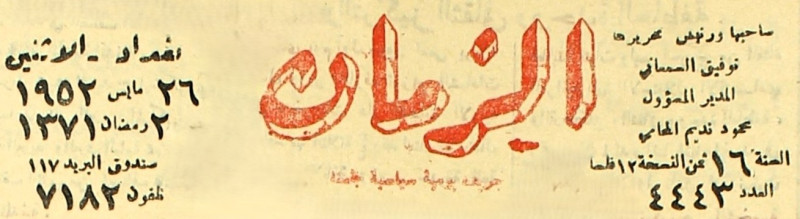 صاحبها ورئيس تحريرها
توفيق السمعاني
المدير المسؤول
محمود نديم المحامي
السنة ١٦ ثمن النسخة ١٢ فلسا
العدد ٤٤٤٣
الزمان
جريدة يومية سياسية جامعة
بغداد - الاثنين
٢٦ مايس ١٩٥٢
٢ رمضان ١٣٧١
صندوق البريد ١١٧
تلفون ٧١٨٢